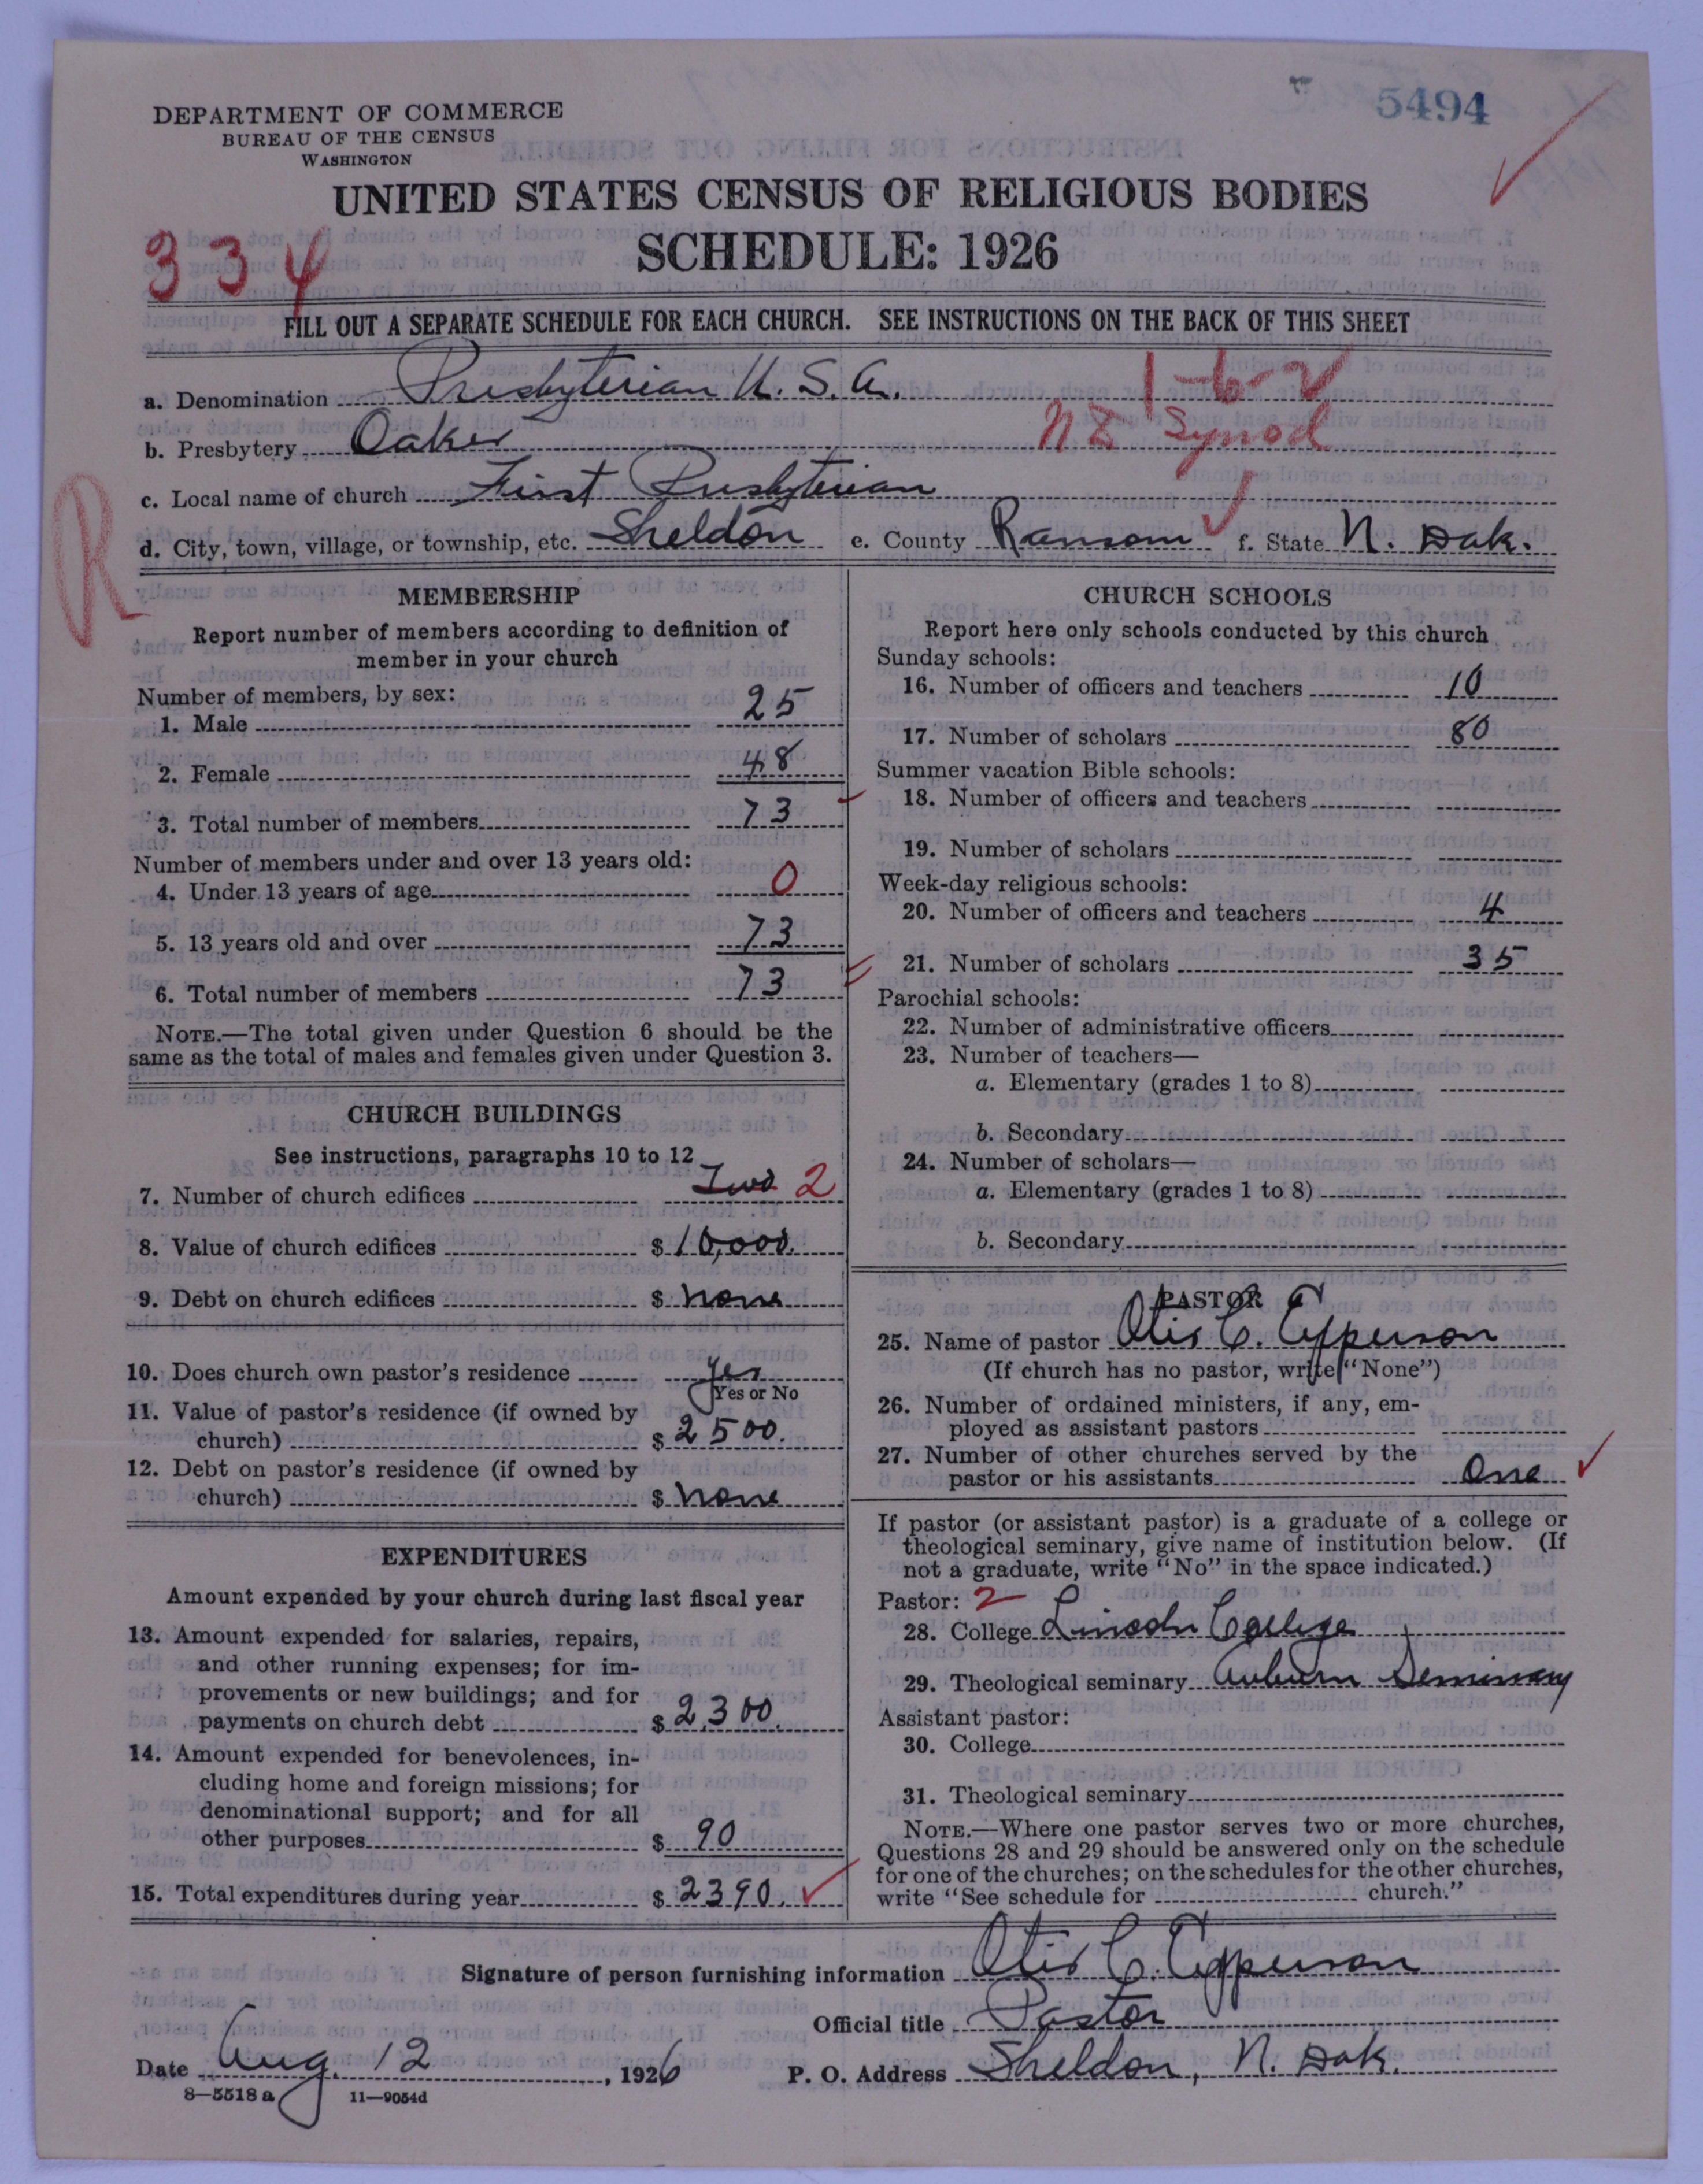 5494
DEPARTMENT OF COMMERCE
BUREAU OF THE CENSUS
WASHINGTON
UNITED STATES CENSUS OF RELIGIOUS BODIES
SCHEDULE: 1926
334
FILL OUT A SEPARATE SCHEDULE FOR EACH CHURCH. SEE INSTRUCTIONS ON THE BACK OF THIS SHEET
1-6-2
a. Denomination Presbyterian U. S. A.
b. Presbytery Oakes
Synod
c. Local name of church First Presbyterian
d. City, town, village, or township, etc. Sheldon e. County Ransom f. State N. Dak.
R
MEMBERSHIP
Report number of members according to definition of
member in your church
Number of members, by sex:
1. Male 25
2. Female 48
3. Total number of members 73
Number of members under and over 13 years old:
4. Under 13 years of age 0
5. 13 years old and over 73
6. Total number of members 73
NOTE.—The total given under Question 6 should be the
same as the total of males and females given under Question 3.
CHURCH BUILDINGS
See instructions, paragraphs 10 to 12
7. Number of church edifices Two 2
8. Value of church edifices $ 10,000.
9. Debt on church edifices $ none
10. Does church own pastor's residence yes
Yes or No
11. Value of pastor's residence (if owned by
church) $ 2500.
12. Debt on pastor's residence (if owned by
church) $ none
EXPENDITURES
Amount expended by your church during last fiscal year
13. Amount expended for salaries, repairs,
and other running expenses; for im-
provements or new buildings; and for
payments on church debt $ 2,300.
14. Amount expended for benevolences, in-
cluding home and foreign missions; for
denominational support; and for all
other purposes $ 90
15. Total expenditures during year $ 2390.
CHURCH SCHOOLS
Report here only schools conducted by this church
Sunday schools:
16. Number of officers and teachers 10
17. Number of scholars 80
Summer vacation Bible schools:
18. Number of officers and teachers
19. Number of scholars
Week-day religious schools:
20. Number of officers and teachers 4
21. Number of scholars 35
Parochial schools:
22. Number of administrative officers
23. Number of teachers—
a. Elementary (grades 1 to 8)
b. Secondary
24. Number of scholars—
a. Elementary (grades 1 to 8)
b. Secondary
PASTOR
25. Name of pastor Otis C. Epperson
(If church has no pastor, write "None")
26. Number of ordained ministers, if any, em-
ployed as assistant pastors
27. Number of other churches served by the
pastor or his assistants One
If pastor (or assistant pastor) is a graduate of a college or
theological seminary, give name of institution below. (If
not a graduate, write "No" in the space indicated.)
Pastor: 2
28. College Lincoln College
29. Theological seminary Auburn Seminary
Assistant pastor:
30. College
31. Theological seminary
NOTE.—Where one pastor serves two or more churches,
Questions 28 and 29 should be answered only on the schedule
for one of the churches; on the schedules for the other churches,
write "See schedule for church."
Signature of person furnishing information Otis C. Epperson
Official title Pastor
Date Aug. 12, 1926 P. O. Address Sheldon, N. Dak.
8—5518 a 11—9054d